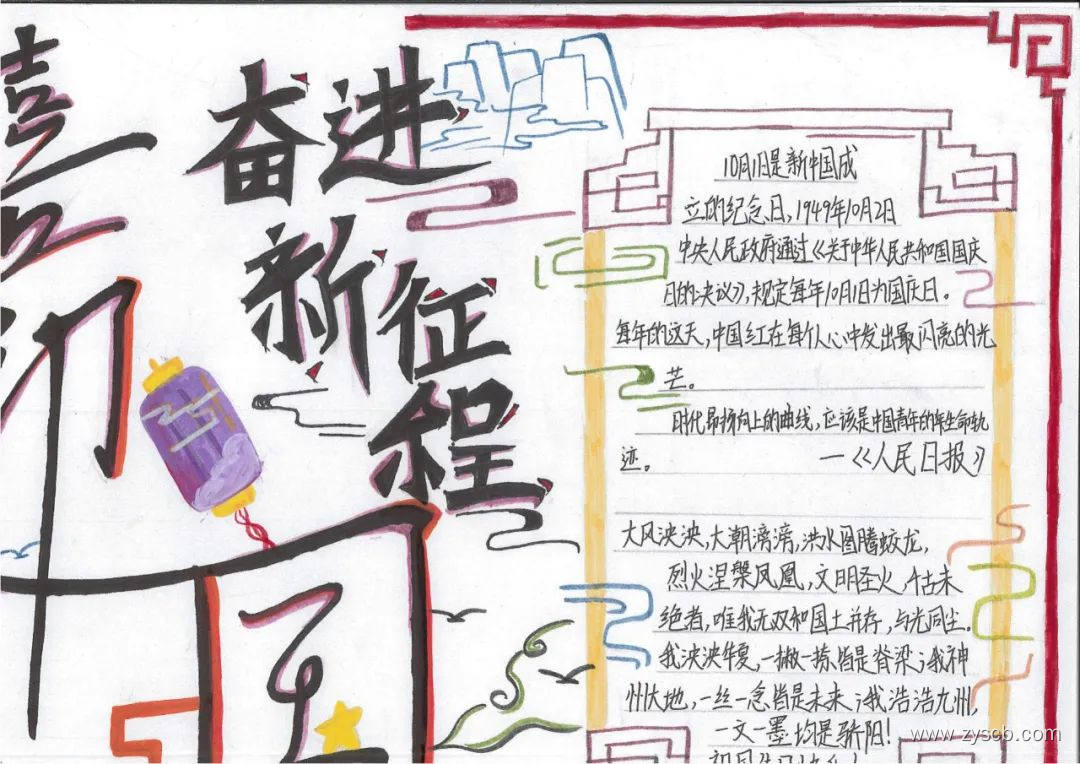 喜
奋进
新征
程
10月1日是新中国成
立的纪念日，1949年10月2日
中央人民政府通过《关于中华人民共和国国庆
日的决议》，规定每年10月1日为国庆日。
每年的这天，中国红在每个人心中发出最闪亮的光
芒。
时代昂扬向上的曲线，应该是中国青年的年生命轨
迹。 —《人民日报》
大风泱泱，大潮滂滂，洪水图腾蛟龙，
烈火涅槃凤凰，文明圣火，千古未
绝者，唯我无双和国土并存，与光同尘。
我泱泱华夏，一撇一捺皆是脊梁；我神
州大地，一丝一念皆是未来；我浩浩九州，
一文一墨均是骄阳！
www.zyscb.com